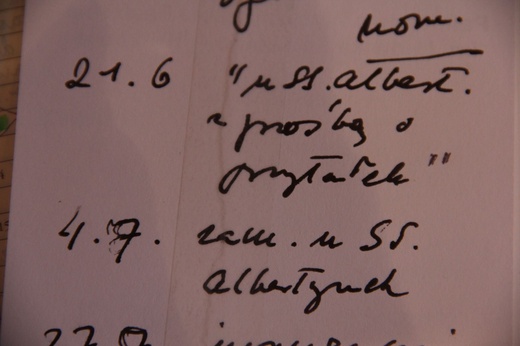 nom.
21.6 "u SS. Albert.
z prośbą o
przytułek"
4.7. zam. u SS.
Albertynek